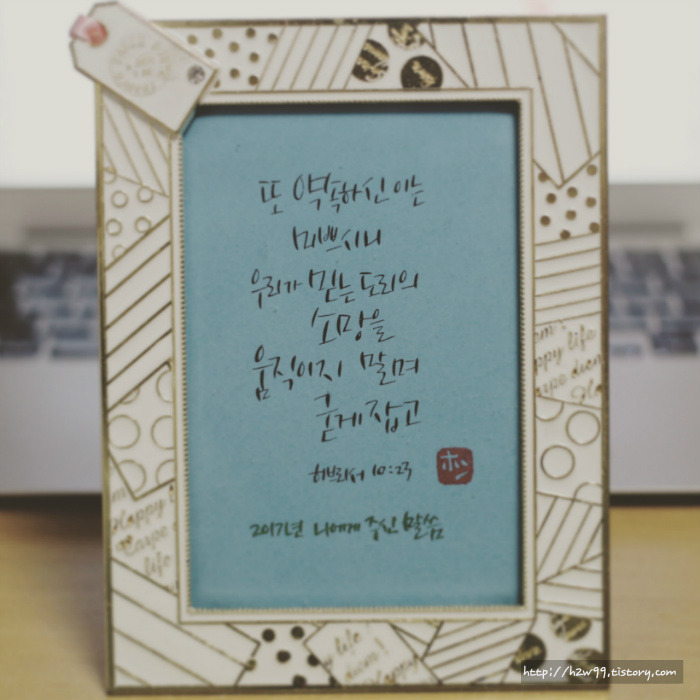 또 약속하신 이는
미쁘시니
우리가 믿는 도리의
소망을
움직이지 말며
굳게 잡고
히브리서 10:23
2017년 나에게 주신 말씀
Happy life
Carpe diem
http://h2w99.tistory.com